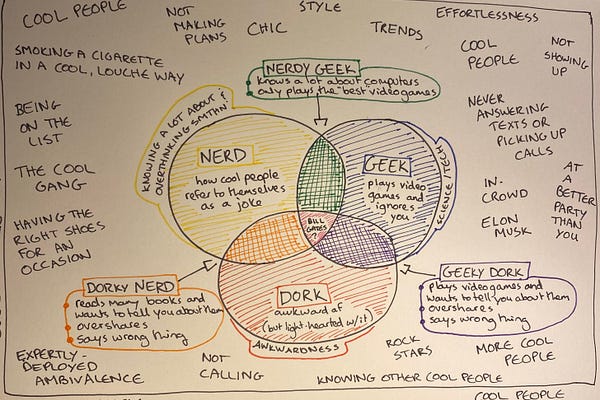 COOL PEOPLE
NOT
MAKING
PLANS
STYLE
CHIC
TRENDS
EFFORTLESSNESS
SMOKING A CIGARETTE
IN A COOL, LOUCHE WAY
COOL
PEOPLE
NOT
SHOWING
UP
NERDY GEEK
knows a lot about computers
only plays the "best" videogames
BEING
ON THE
LIST
NEVER
ANSWERING
TEXTS OR
PICKING UP
CALLS
KNOWING A LOT ABOUT &
OVERTHINKING SMTHN
NERD
how cool people
refer to themselves
as a joke
GEEK
plays video
games and
ignores
you
SCIENCE/TECH
THE COOL
GANG
IN-
CROWD
AT
A
BETTER
PARTY
THAN
YOU
ELON
MUSK
HAVING THE
RIGHT SHOES
FOR AN
OCCASION
BILL
GATES
?
DORKY NERD
reads many books and
wants to tell you about them
overshares
says wrong thing
GEEKY DORK
plays videogames and
wants to tell you about them
overshares
says wrong thing
DORK
awkward af
(but light-hearted w/it)
AWKWARDNESS
EXPERTLY-
DEPLOYED
AMBIVALENCE
NOT
CALLING
ROCK
STARS
MORE COOL
PEOPLE
KNOWING OTHER COOL PEOPLE
COOL PEOPLE